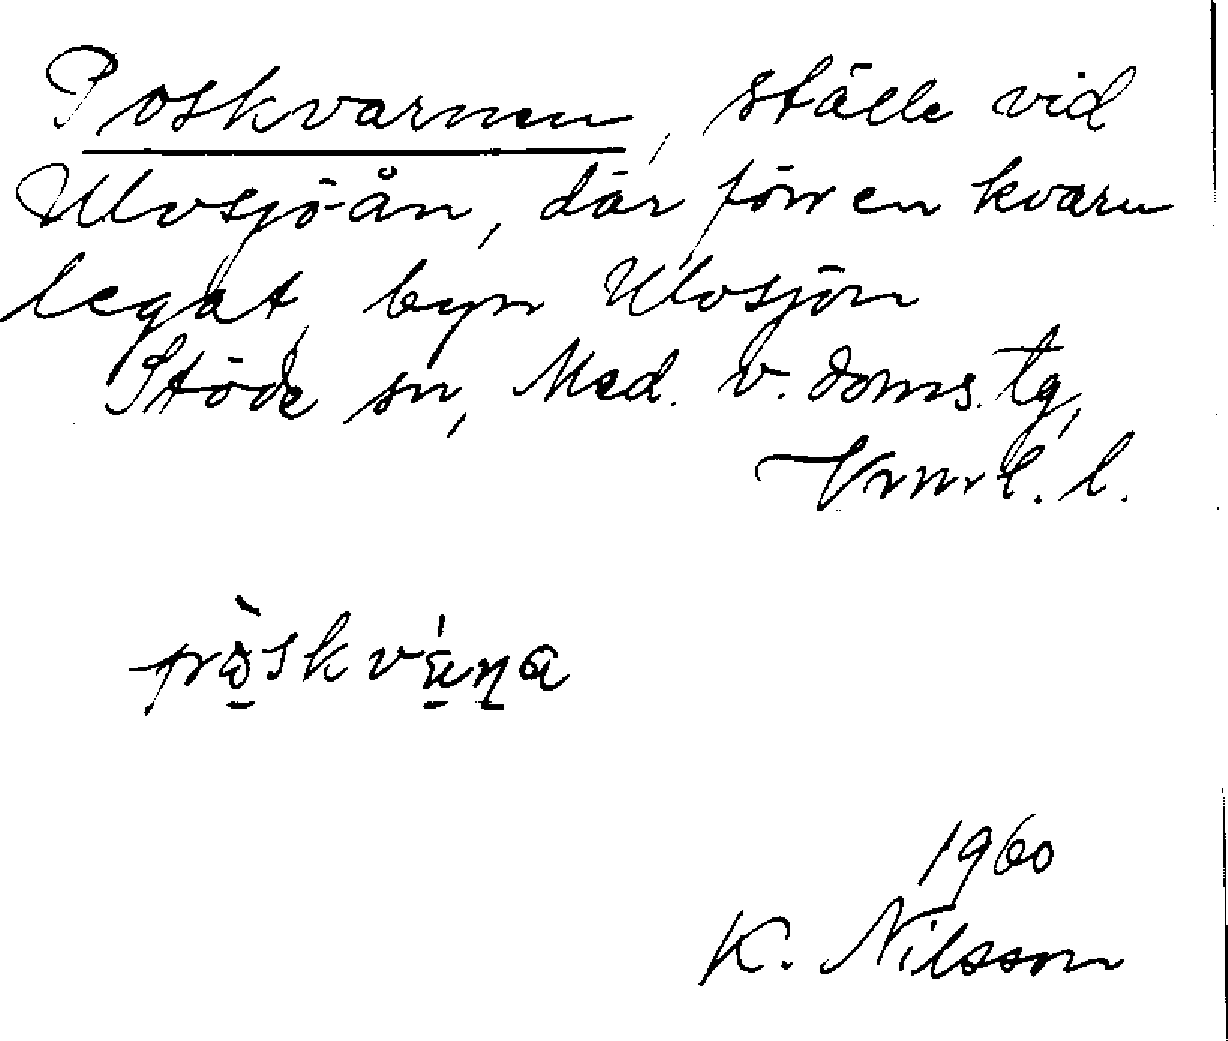 Poskvarnen, ställe vid
Ulvsjö-ån, där förr en kvarn
legat, byn Ulvsjön
Stöde sn, Med. v. doms. tg,
l.
1960
K. Nilsson